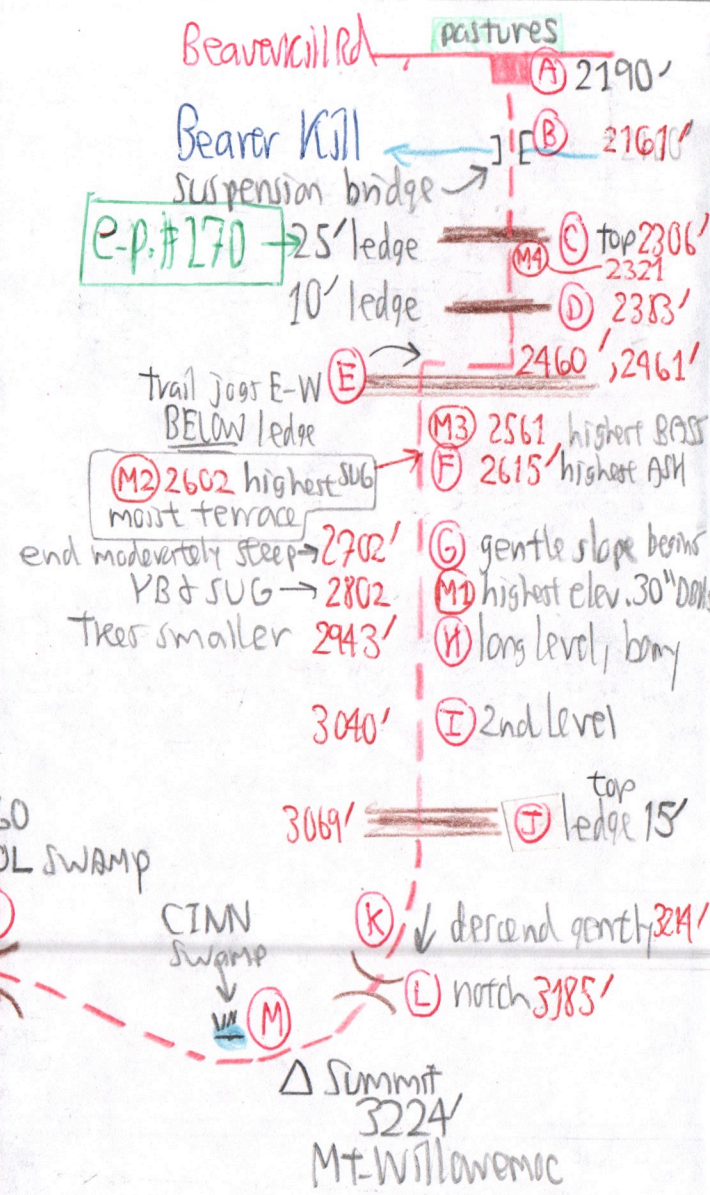 pastures
Beaverkill Rd
A 2190'
Beaver Kill
B 2161'
suspension bridge
e-p. #170 → 25' ledge
C top 2306'
M4 2321
10' ledge
D 2383'
2460', 2461'
trail jogs E-W E
BELOW ledge
M3 2561 highest BASS
F 2615' highest ASH
M2 2602 highest SUG
moist terrace
end moderately steep → 2702'
G gentle slope begins
YB & SUG → 2802
M1 highest elev. 30"
Trees smaller 2943'
H long level,
3040'
I 2nd level
top
3069'
J ledge 15'
SWAMP
CINN
swamp
K descend gently 3214'
L notch 3185'
M
△ Summit
3224'
Mt. Willowemoc